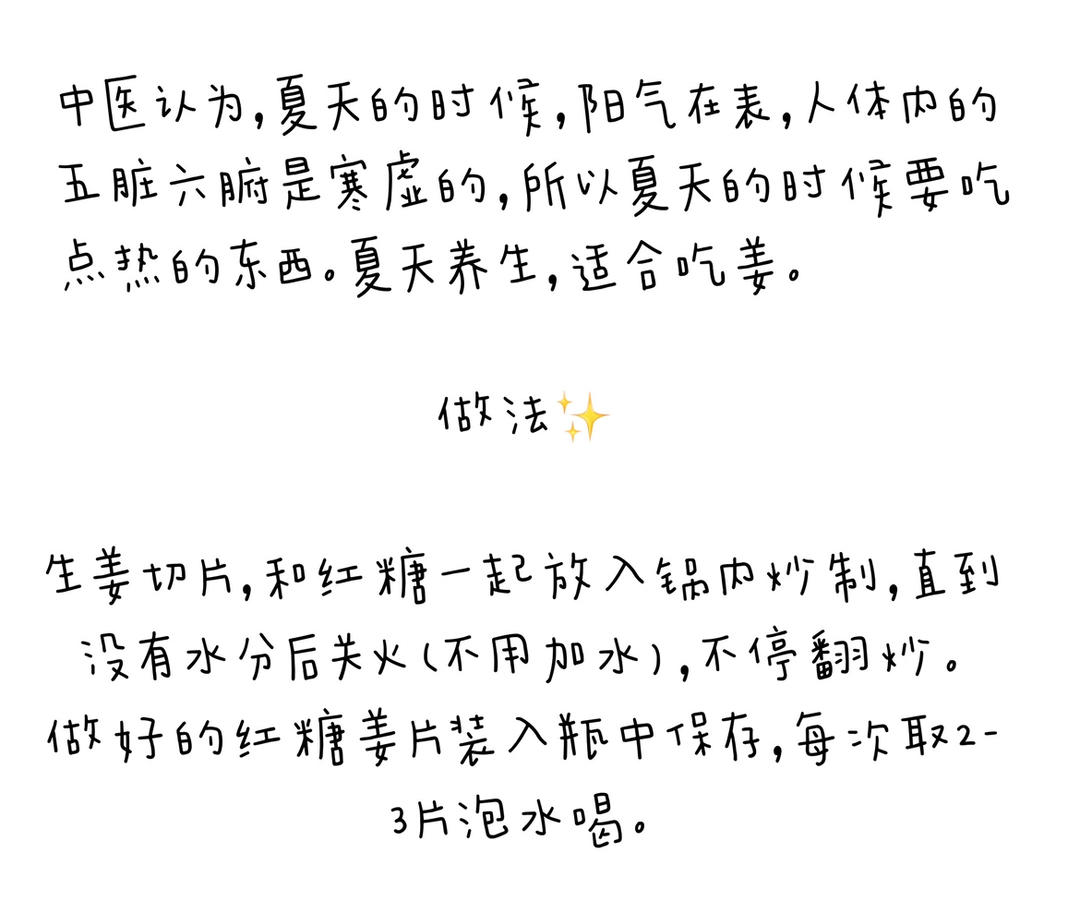 中医认为,夏天的时候,阳气在表,人体内的
五脏六腑是寒虚的,所以夏天的时候要吃
点热的东西。夏天养生,适合吃姜。
做法✨
生姜切片,和红糖一起放入锅内炒制,直到
没有水分后关火(不用加水),不停翻炒。
做好的红糖姜片装入瓶中保存,每次取2-
3片泡水喝。